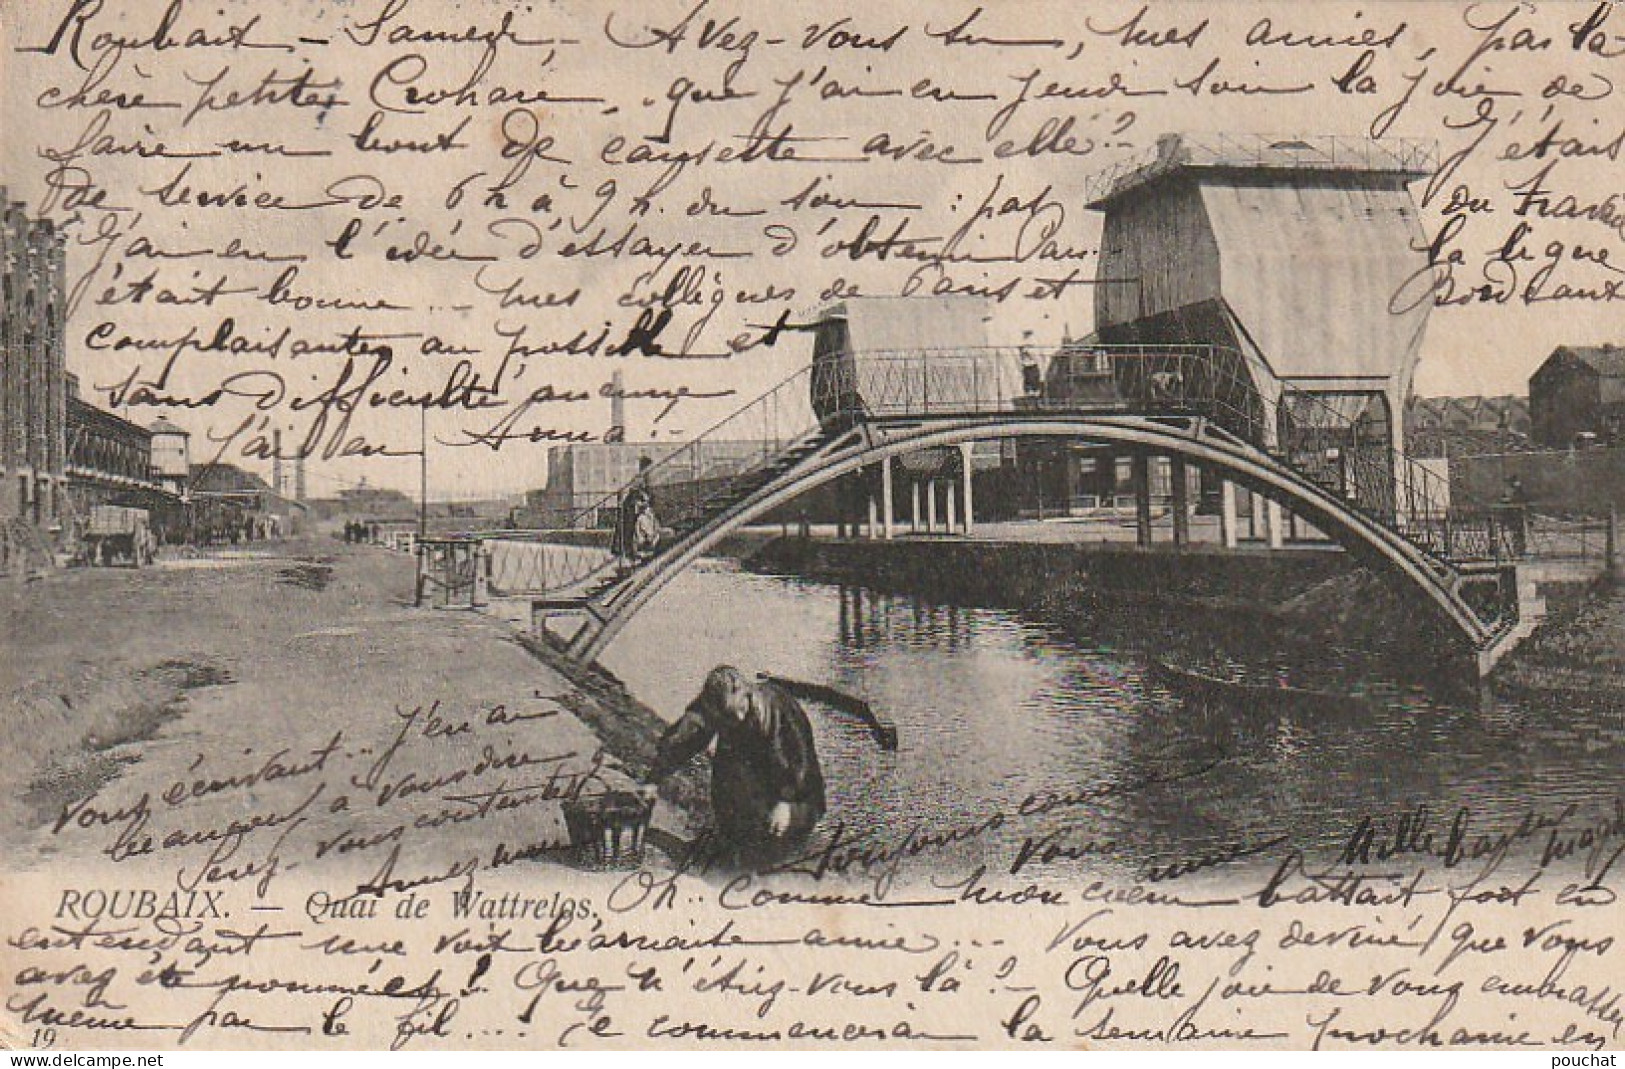 Roubaix - Samedi - Avez-vous su, mes amies, par la
chère petite Crohare, que j'ai eu jeudi soir la joie de
faire un bout de causette avec elle? J'était
de service de 6 h à 9 h. du soir : pas du Travail
J'ai eu l'idée d'essayer d'obtenir Paris. la ligne
était bonne ... mes collègues de Paris et Bordeaux
complaisantes au possible et
sans difficulté aucune
j'ai eu Anna ...
vous écrivant .. J'en ai
beaucoup à vous dire
Serez-vous contentes?
Aimez-moi toujours comme
vous aime Mille baisers
ROUBAIX. — Quai de Wattrelos.
Oh.. comme mon cœur battait fort en
entendant une voix béarnaise amie ... Vous avez deviné que vous
avez été nommées! Que n'étiez-vous là? - Quelle joie de vous embrasser
même par le fil ... Je commencerai la semaine prochaine en
19
pouchat